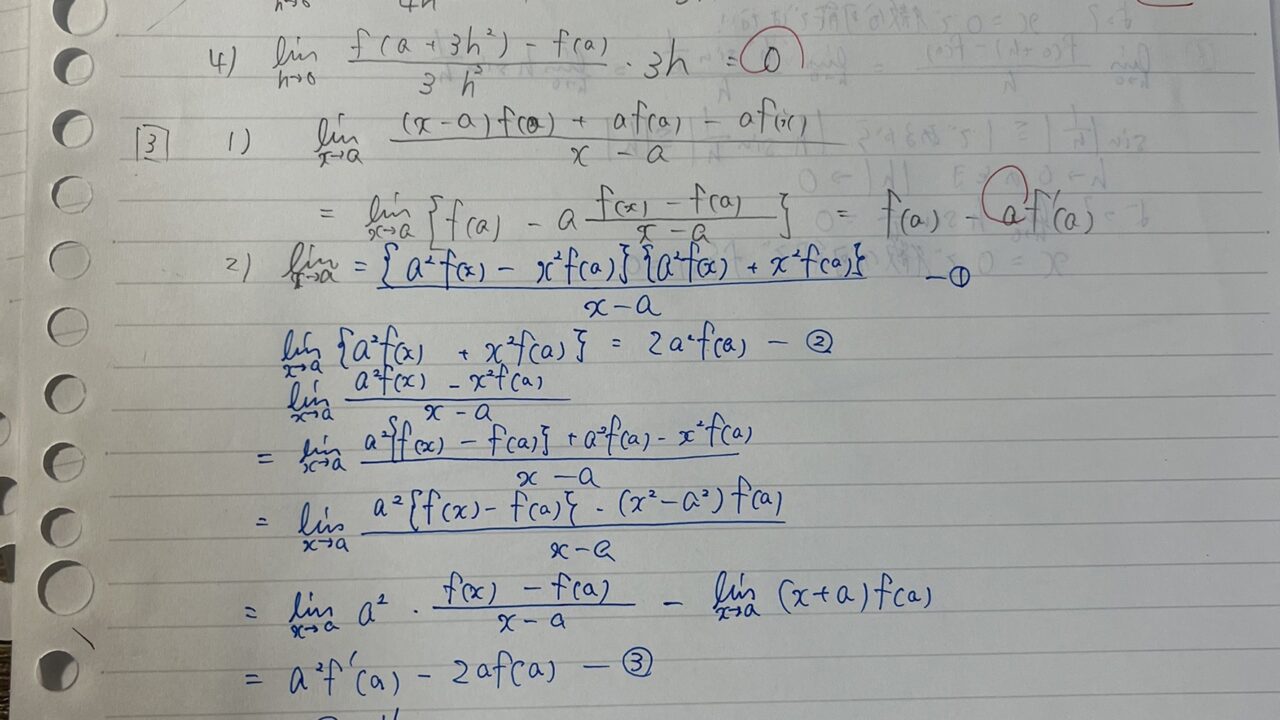 4) lim h→0 f(a + 3h²) - f(a) / 3h² · 3h = 0
[3] 1) lim x→a (x-a)f(a) + af(a) - af(x) / x - a
= lim x→a { f(a) - a f(x) - f(a) / x - a } = f(a) - af'(a)
2) lim x→a = {a²f(x) - x²f(a)}{a²f(x) + x²f(a)} / x-a - ①
lim x→a {a²f(x) + x²f(a)} = 2a²f(a) - ②
lim x→a a²f(x) - x²f(a) / x - a
= lim x→a a²{f(x) - f(a)} + a²f(a) - x²f(a) / x - a
= lim x→a a²{f(x) - f(a)} - (x²-a²)f(a) / x-a
= lim x→a a² · f(x) - f(a) / x - a - lim x→a (x+a)f(a)
= a²f'(a) - 2af(a) - ③